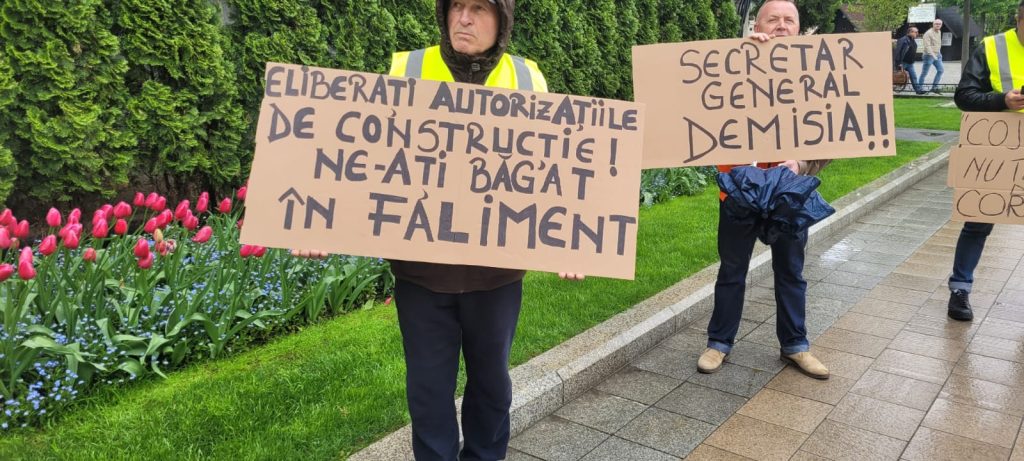 ELIBERAȚI AUTORIZAȚIILE
DE CONȘTRUCȚIE!
NE-AȚI BĂGAT
ÎN FALIMENT
SECRETAR
GENERAL
DEMISIA!!
NU
COR